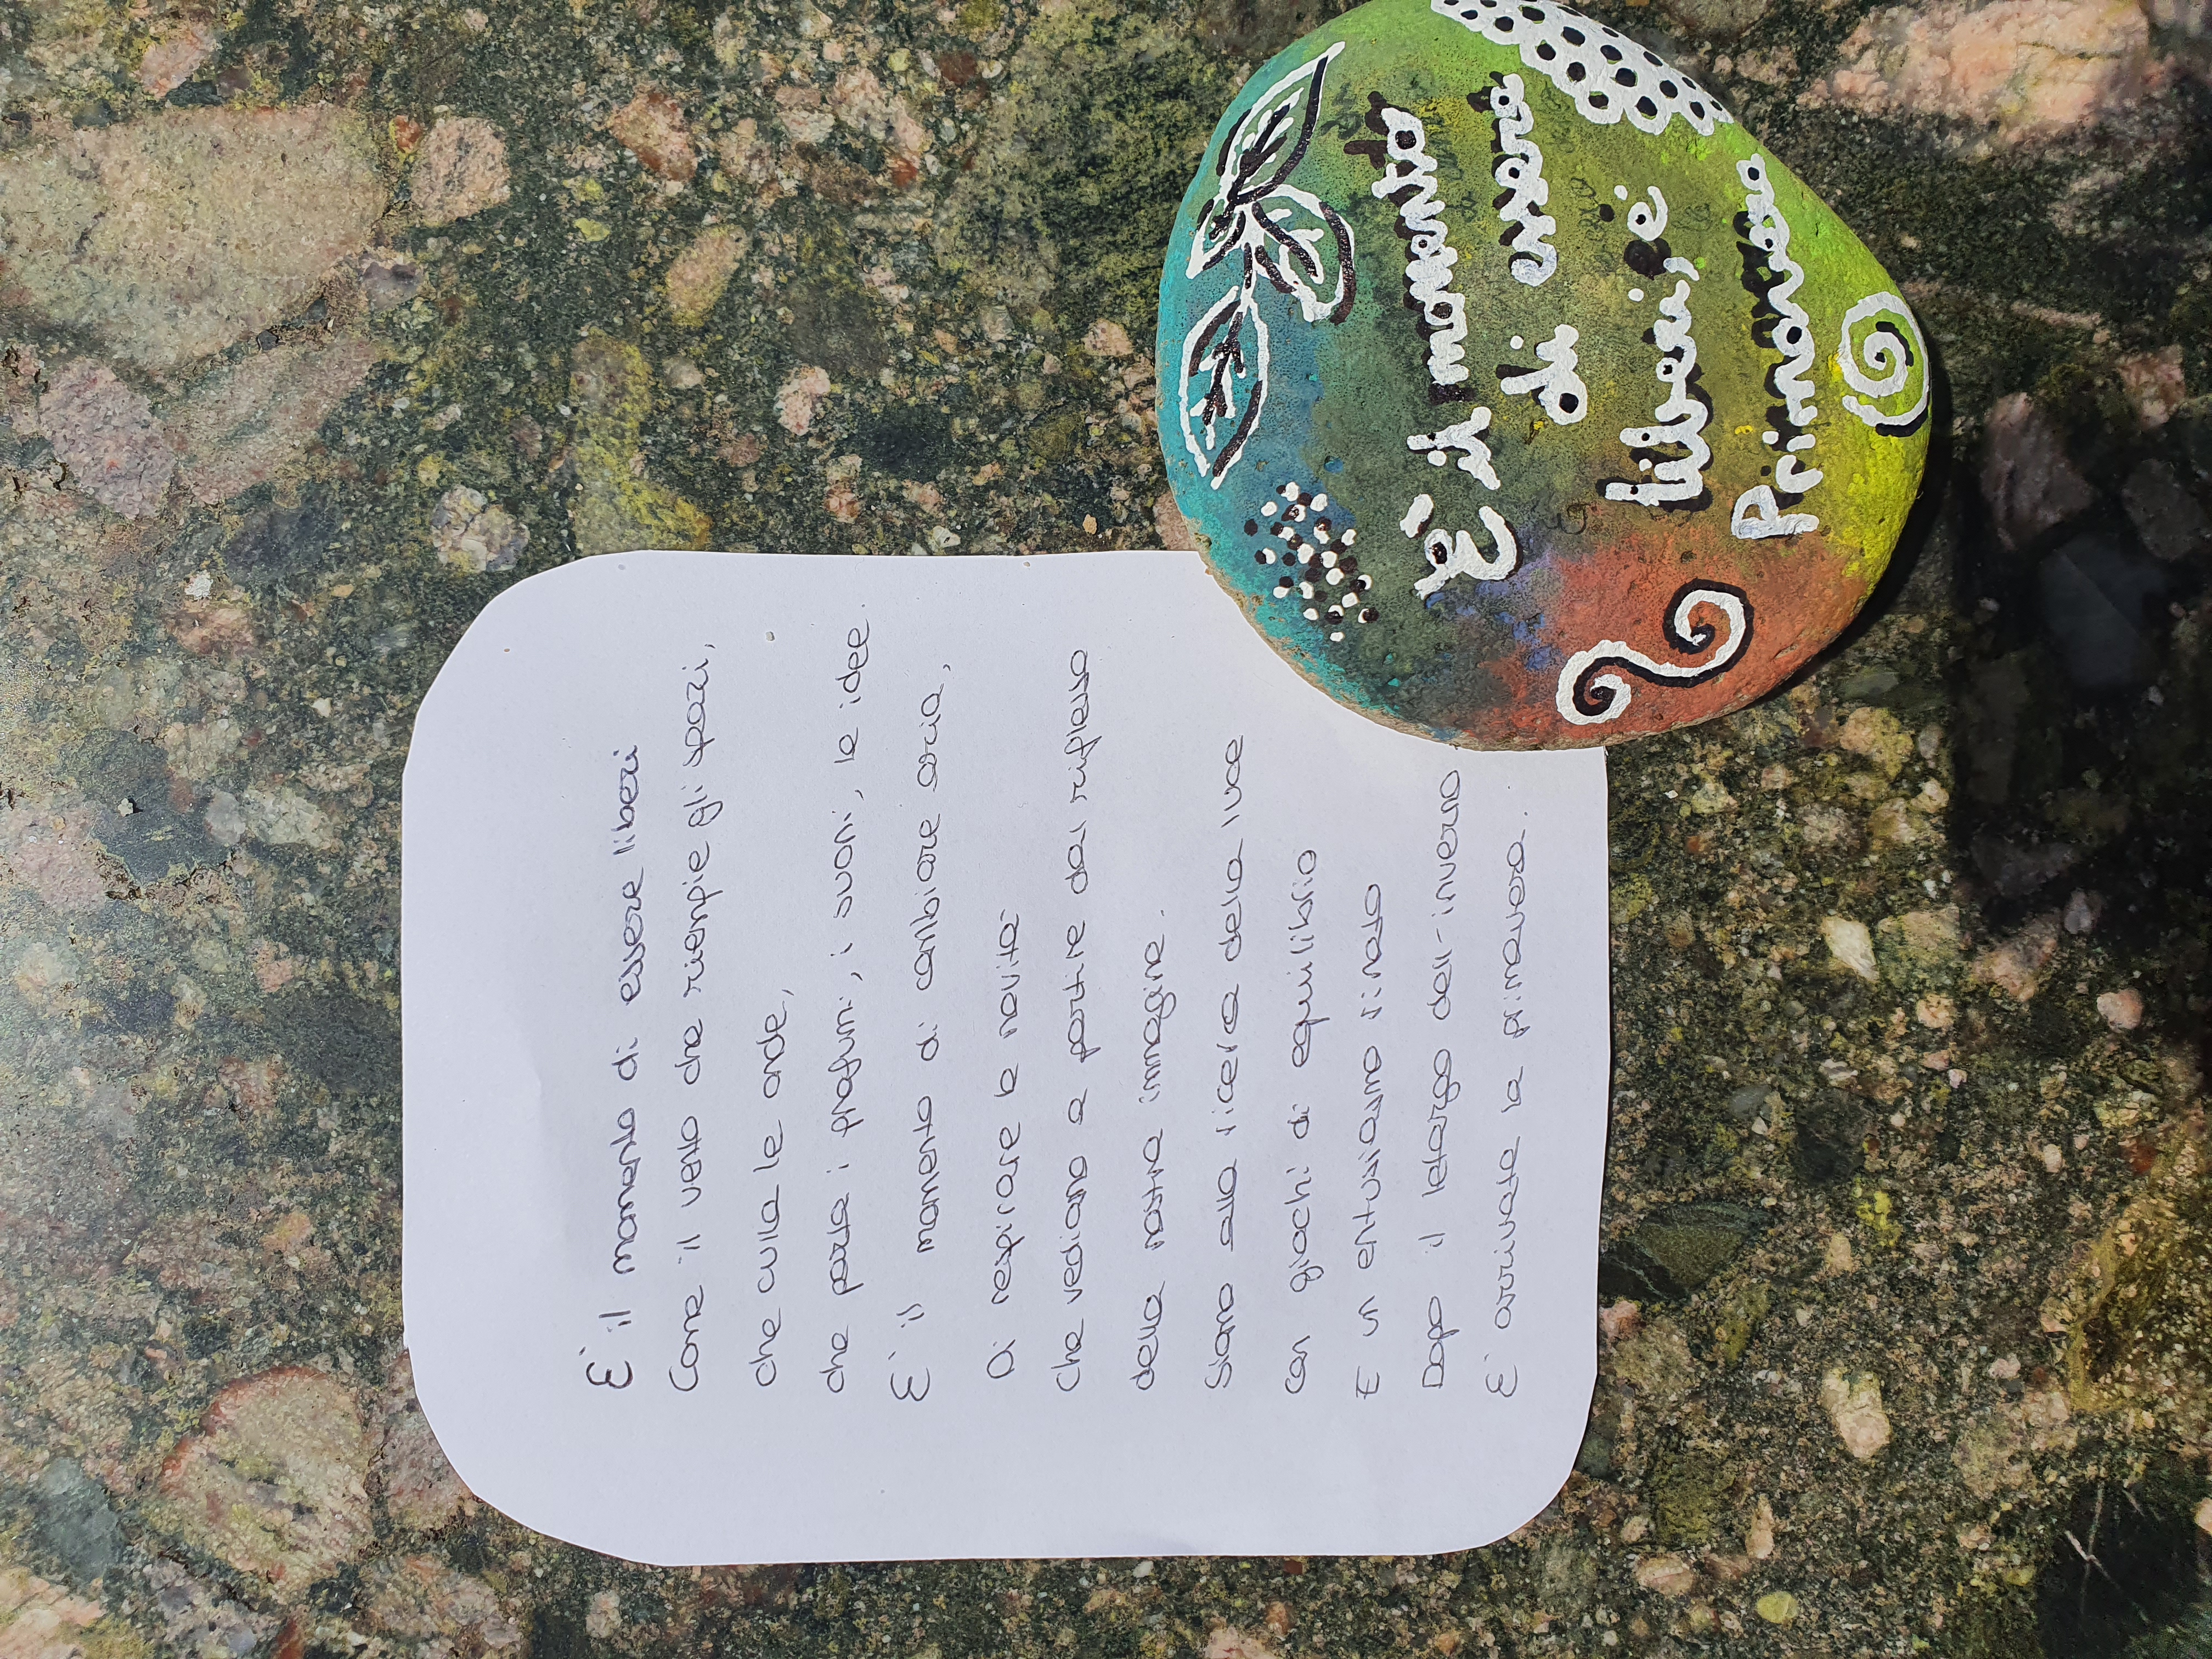 E' il momento di essere liberi
Come il vento che riempie gli spazi,
che culla le onde,
che porta i profumi, i suoni, le idee.
E' il momento di cambiare aria,
Di respirare le novità
Che vediamo a partire dal riflesso
della nostra immagine.
Siamo alla ricerca della luce
con giochi di equilibrio
E un entusiasmo rinato
Dopo il letargo dell'inverno
E' arrivata la primavera.
E' il momento
di essere
liberi, è
Primavera